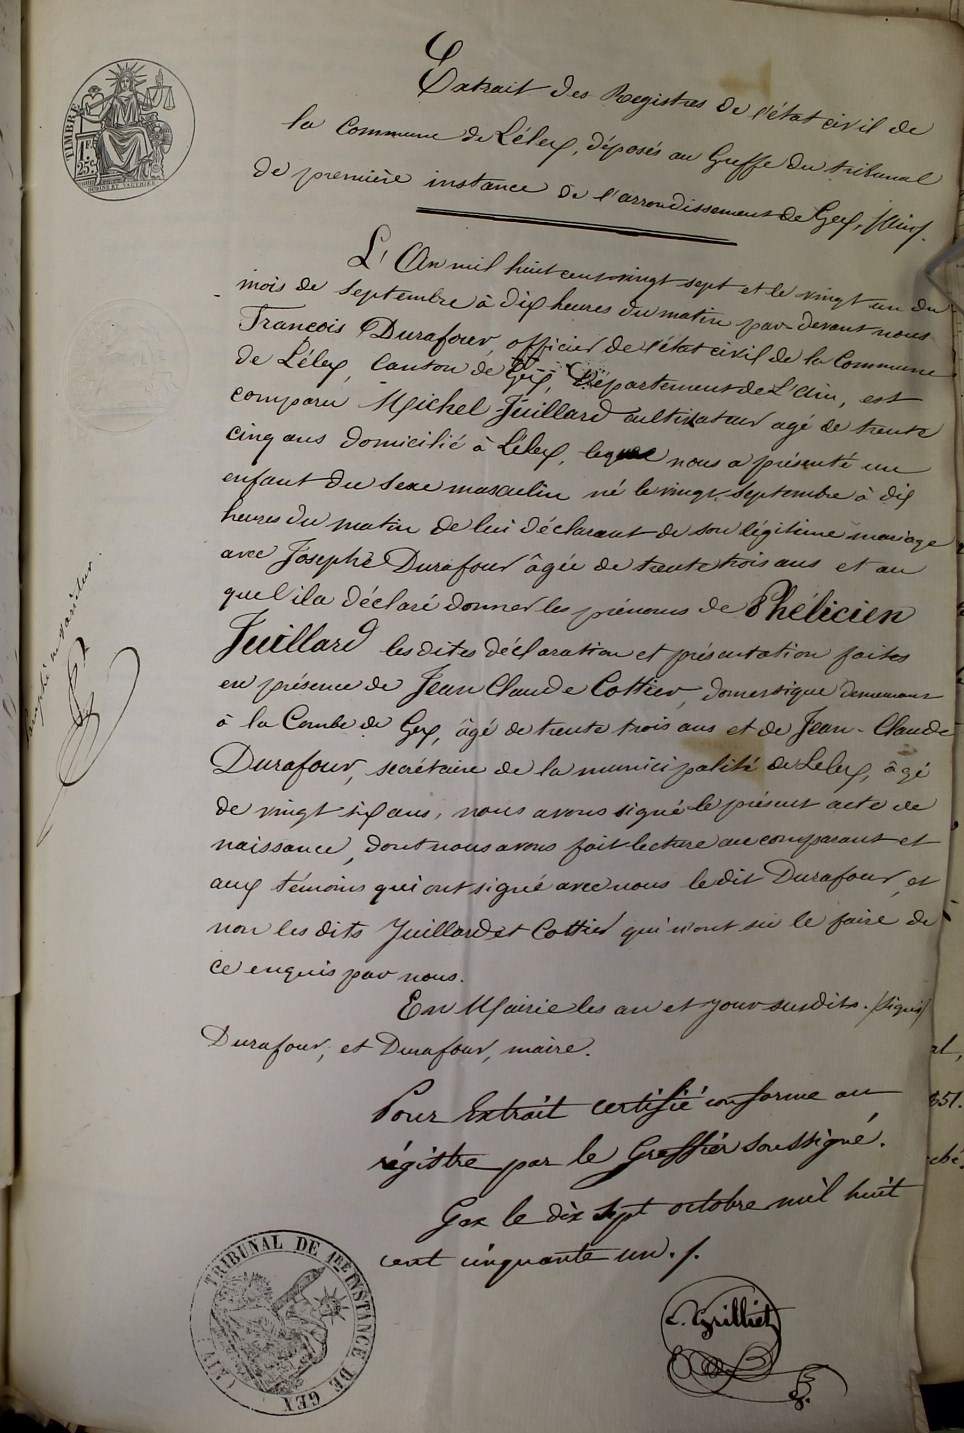 TIMBRE
1F.
25c.
Extrait des Registres de l'état civil de
la Commune de Lélex, déposés au Greffe du tribunal
de première instance de l'arrondissement de Gex, (Ain).
L'An mil huit cent vingt sept et le vingt un du
mois de Septembre à dix heures du matin par devant nous
François Durafour, officier de l'état civil de la Commune
de Lélex, Canton de Gex, Département de L'ain, est
comparu Michel Juillard cultivateur agé de trente
cinq ans domicilié à Lélex, lequel nous a présenté un
enfant du sexe masculin né le vingt Septembre à dix
heures du matin de lui déclarant de son légitime mariage
avec Josephe Durafour âgée de trente trois ans et au
quel il a déclaré donner les prénoms de Phélicien
Juillard les dites déclaration et présentation faites
en présence de Jean Claude Cottier, domestique demeurant
à la Combe de Gex, âgé de trente trois ans et de Jean-Claude
Durafour, secrétaire de la municipalité de Lelex, âgé
de vingt six ans, nous avons signé le présent acte de
naissance, dont nous avons fait lecture au comparant et
aux témoins qui ont signé avec nous le dit Durafour, et
non les dits Juillard et Cottier qui n'ont su le faire de
ce enquis par nous.
En Mairie les an et jour susdits. (signé)
Durafour, et Durafour, maire.
Pour Extrait certifié conforme au
régistre par le Greffier soussigné.
Gex le dix sept octobre mil huit
cent cinquante un ./.
L. Grilliet
TRIBUNAL DE 1RE INSTANCE DE GEX
(AIN)
al,
851.